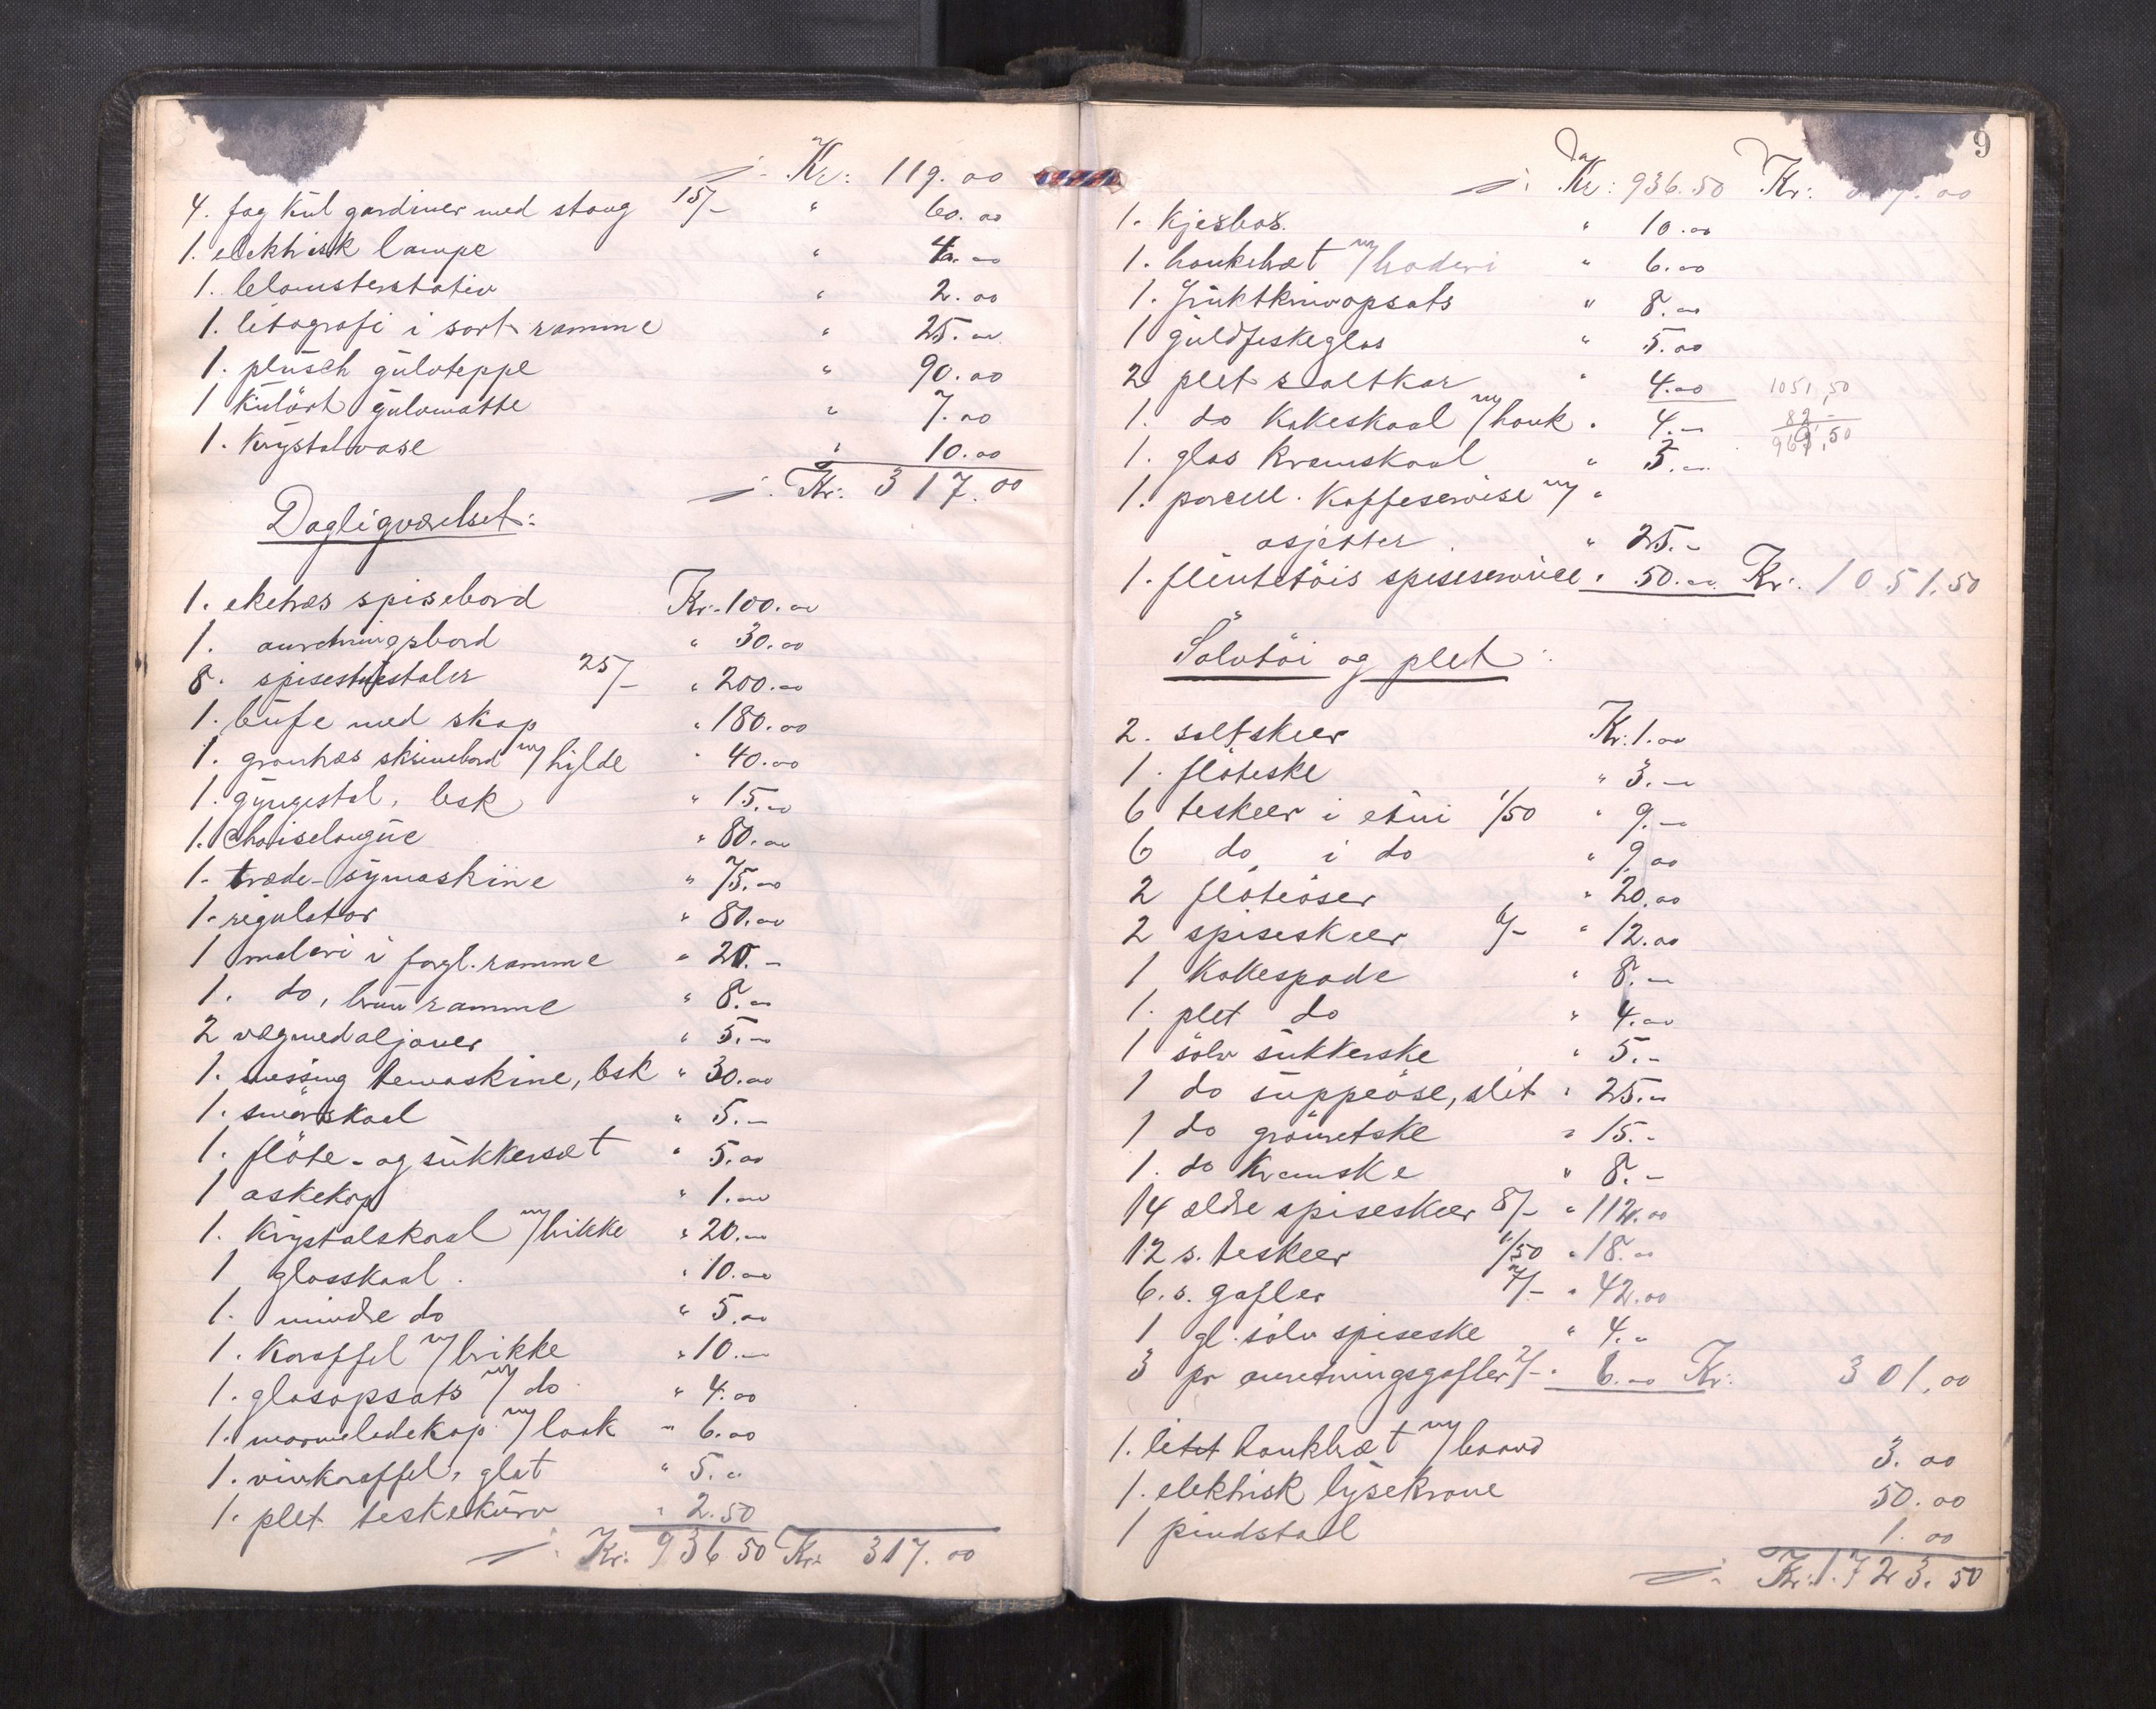 Kr: 119.00
4. fag kul. gardiner med stang 15/- " 60.00
1. elektrisk lampe " 4.00
1. blomsterstativ " 2.00
1. litografi i sort ramme " 25.00
1. plüsch gulvteppe " 90.00
1 kulört gulvmatte " 7.00
1. krystalvase " 10.00
Kr: 317.00
Dagligværelset:
1. eketræs spisebord Kr. 100.00
1. anretningsbord " 30.00
8. spisestuestoler 25/- " 200.00
1. büfe med skap " 180.00
1. grantræs skrivebord m/hylde " 40.00
1. gyngestol, besk " 15.00
1. Chaiselongue " 80.00
1. træde-symaskine " 75.00
1. regulator " 80.00
1 maleri i forgl. ramme " 20.-
1. do, brun ramme " 8.00
2 vægmedaljoner " 5.-
1. messing temaskine, besk " 30.00
1. smörskaal " 5.-
1. flöte- og sukkersæt " 5.00
1 askekop " 1.00
1. krystalskaal m/brikke " 20.00
1 glasskaal. " 10.00
1. mindre do " 5.00
1. karaffel m/brikke " 10.-
1. glasopsats m/ do " 4.00
1. marmeladekop m/ laak " 6.00
1. vinkaraffel, glat " 5.00
1. plet teskekurv " 2.50
Kr: 936 50 Kr: 317.00
9
Kr: 936.50 Kr: 7.00
1. kjesbos. " 10.00
1. hankebræt m/broderi " 6.00
1. fruktknivopsats " 8.00
1 guldfiskeglas " 5.00
2 plet saltkar " 4.00 1051,50
1. do kakeskaal m/hank " 4.- 82 -
1. glas kremskaal " 5.00 969,50
1. porcell. kaffeservise m/ "
asjetter. " 25.-
1. flintetöis spiseservice " 50.00 Kr: 1051.50
Sölvtöi og plet:
2. saltskeer Kr: 1.00
1. flöteske " 3.-
6 teskeer i etui 1/50 " 9.-
6 do i do " 9.00
2 flöteöser " 20.00
2 spiseskeer 6/- " 12.00
1 kakespade " 8.-
1. plet do " 4.00
1 sölv sukkerske " 5.-
1 do suppeöse, slit " 25.00
1 do grönretske " 15.-
1. do kremske " 8.-
14 ældre spiseskeer 8/- " 112.00
12 s. teskeer 1/50 " 18.00
6. s. gafler 7/- " 42.00
1 gl. sölv spiseske " 4.-
3 pr anretningsgafler 2/- " 6.00 Kr: 301.00
1. litet hankbræt m/baand 3.00
1. elektrisk lysekrone 50.00
1 pindstol 1.00
Kr: 1.723.50